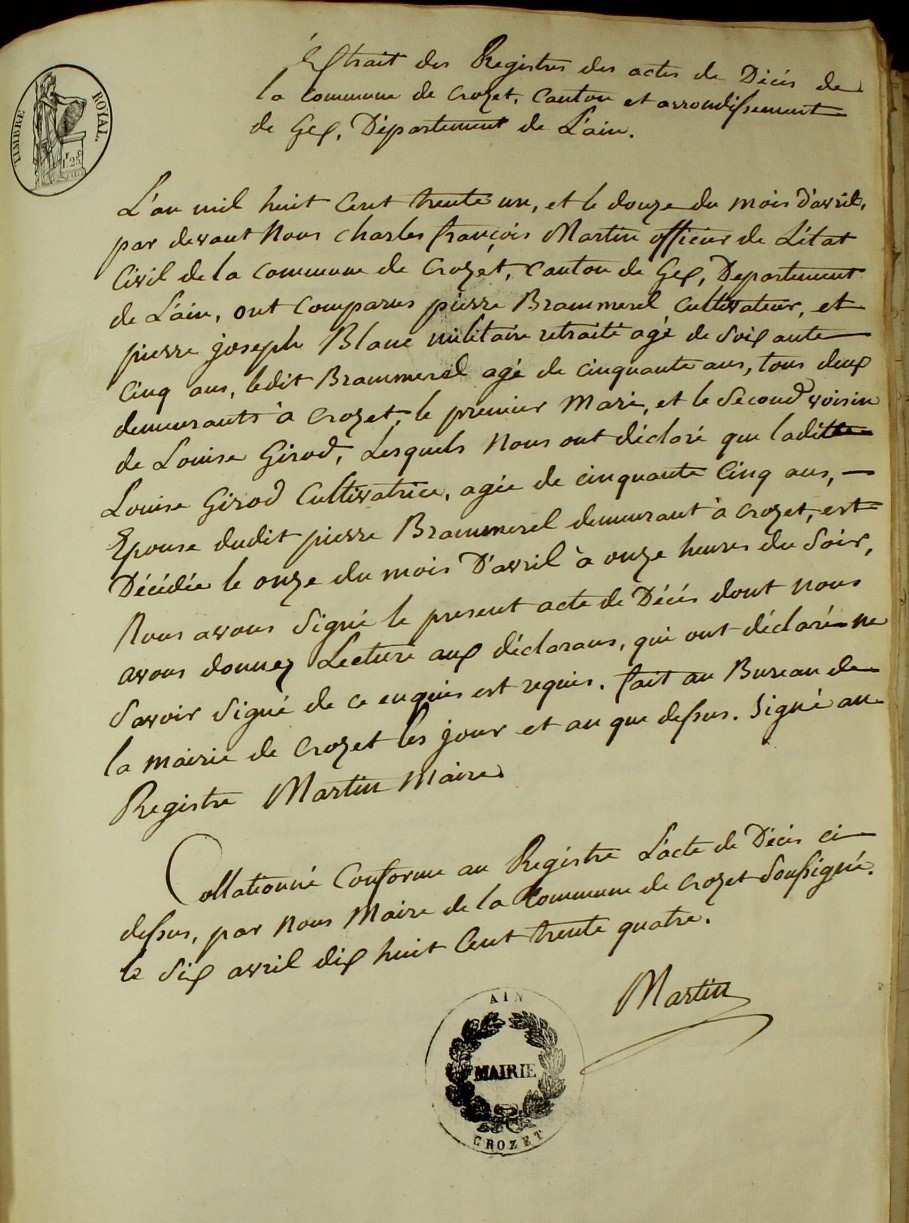 TIMBRE ROYAL.
1F 25C
Extrait des Registres des actes de Décés de
la commune de Crozet, Canton et arrondissement
de Gex, Département de L'ain.
L'an mil huit Cent trente un, et le douze du mois d'avril,
par devant Nous Charles françois Martin officier de L'état
Civil de la commune de Crozet, Canton de Gex, Departement
de L'ain, ont comparus pierre Brammerel Cultivateur, et
pierre joseph Blanc militaire retraité agé de Soixante
Cinq ans, ledit Brammerel agé de cinquante ans, tous deux
demeurants à Crozet, le premier Mari, et le Second voisin
de Louise Girod, Lesquels Nous ont déclaré que laditte
Louise Girod Cultivatrice, agée de cinquante Cinq ans, —
Epouse dudit pierre Brammerel demeurant à Crozet, est
Décédée le onze du mois D'avril à onze heures du Soir,
Nous avons Signé le present acte de Décés dont nous
avons donnez Lecture aux déclarans, qui ont déclaré ne
Savoir Signé de ce enquis est requis. fait au Bureau de
la mairie de Crozet les jour et an que dessus. Signé au
Registre Martin Maire
Collationné Conforme au Registre L'acte de Décés ci
dessus, par nous Maire de la Commune de Crozet Soussigné.
le Six avril dix huit Cent trente quatre.
Martin
AIN
MAIRIE
CROZET